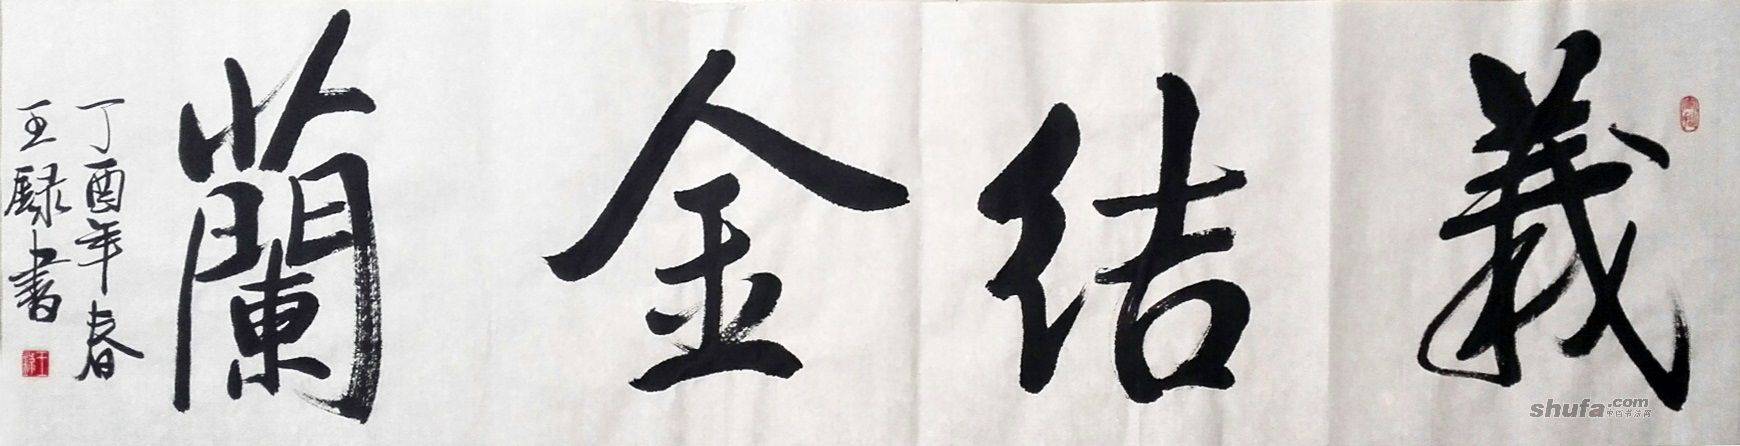 義結金蘭
丁酉年春
王騄書
shufa.com